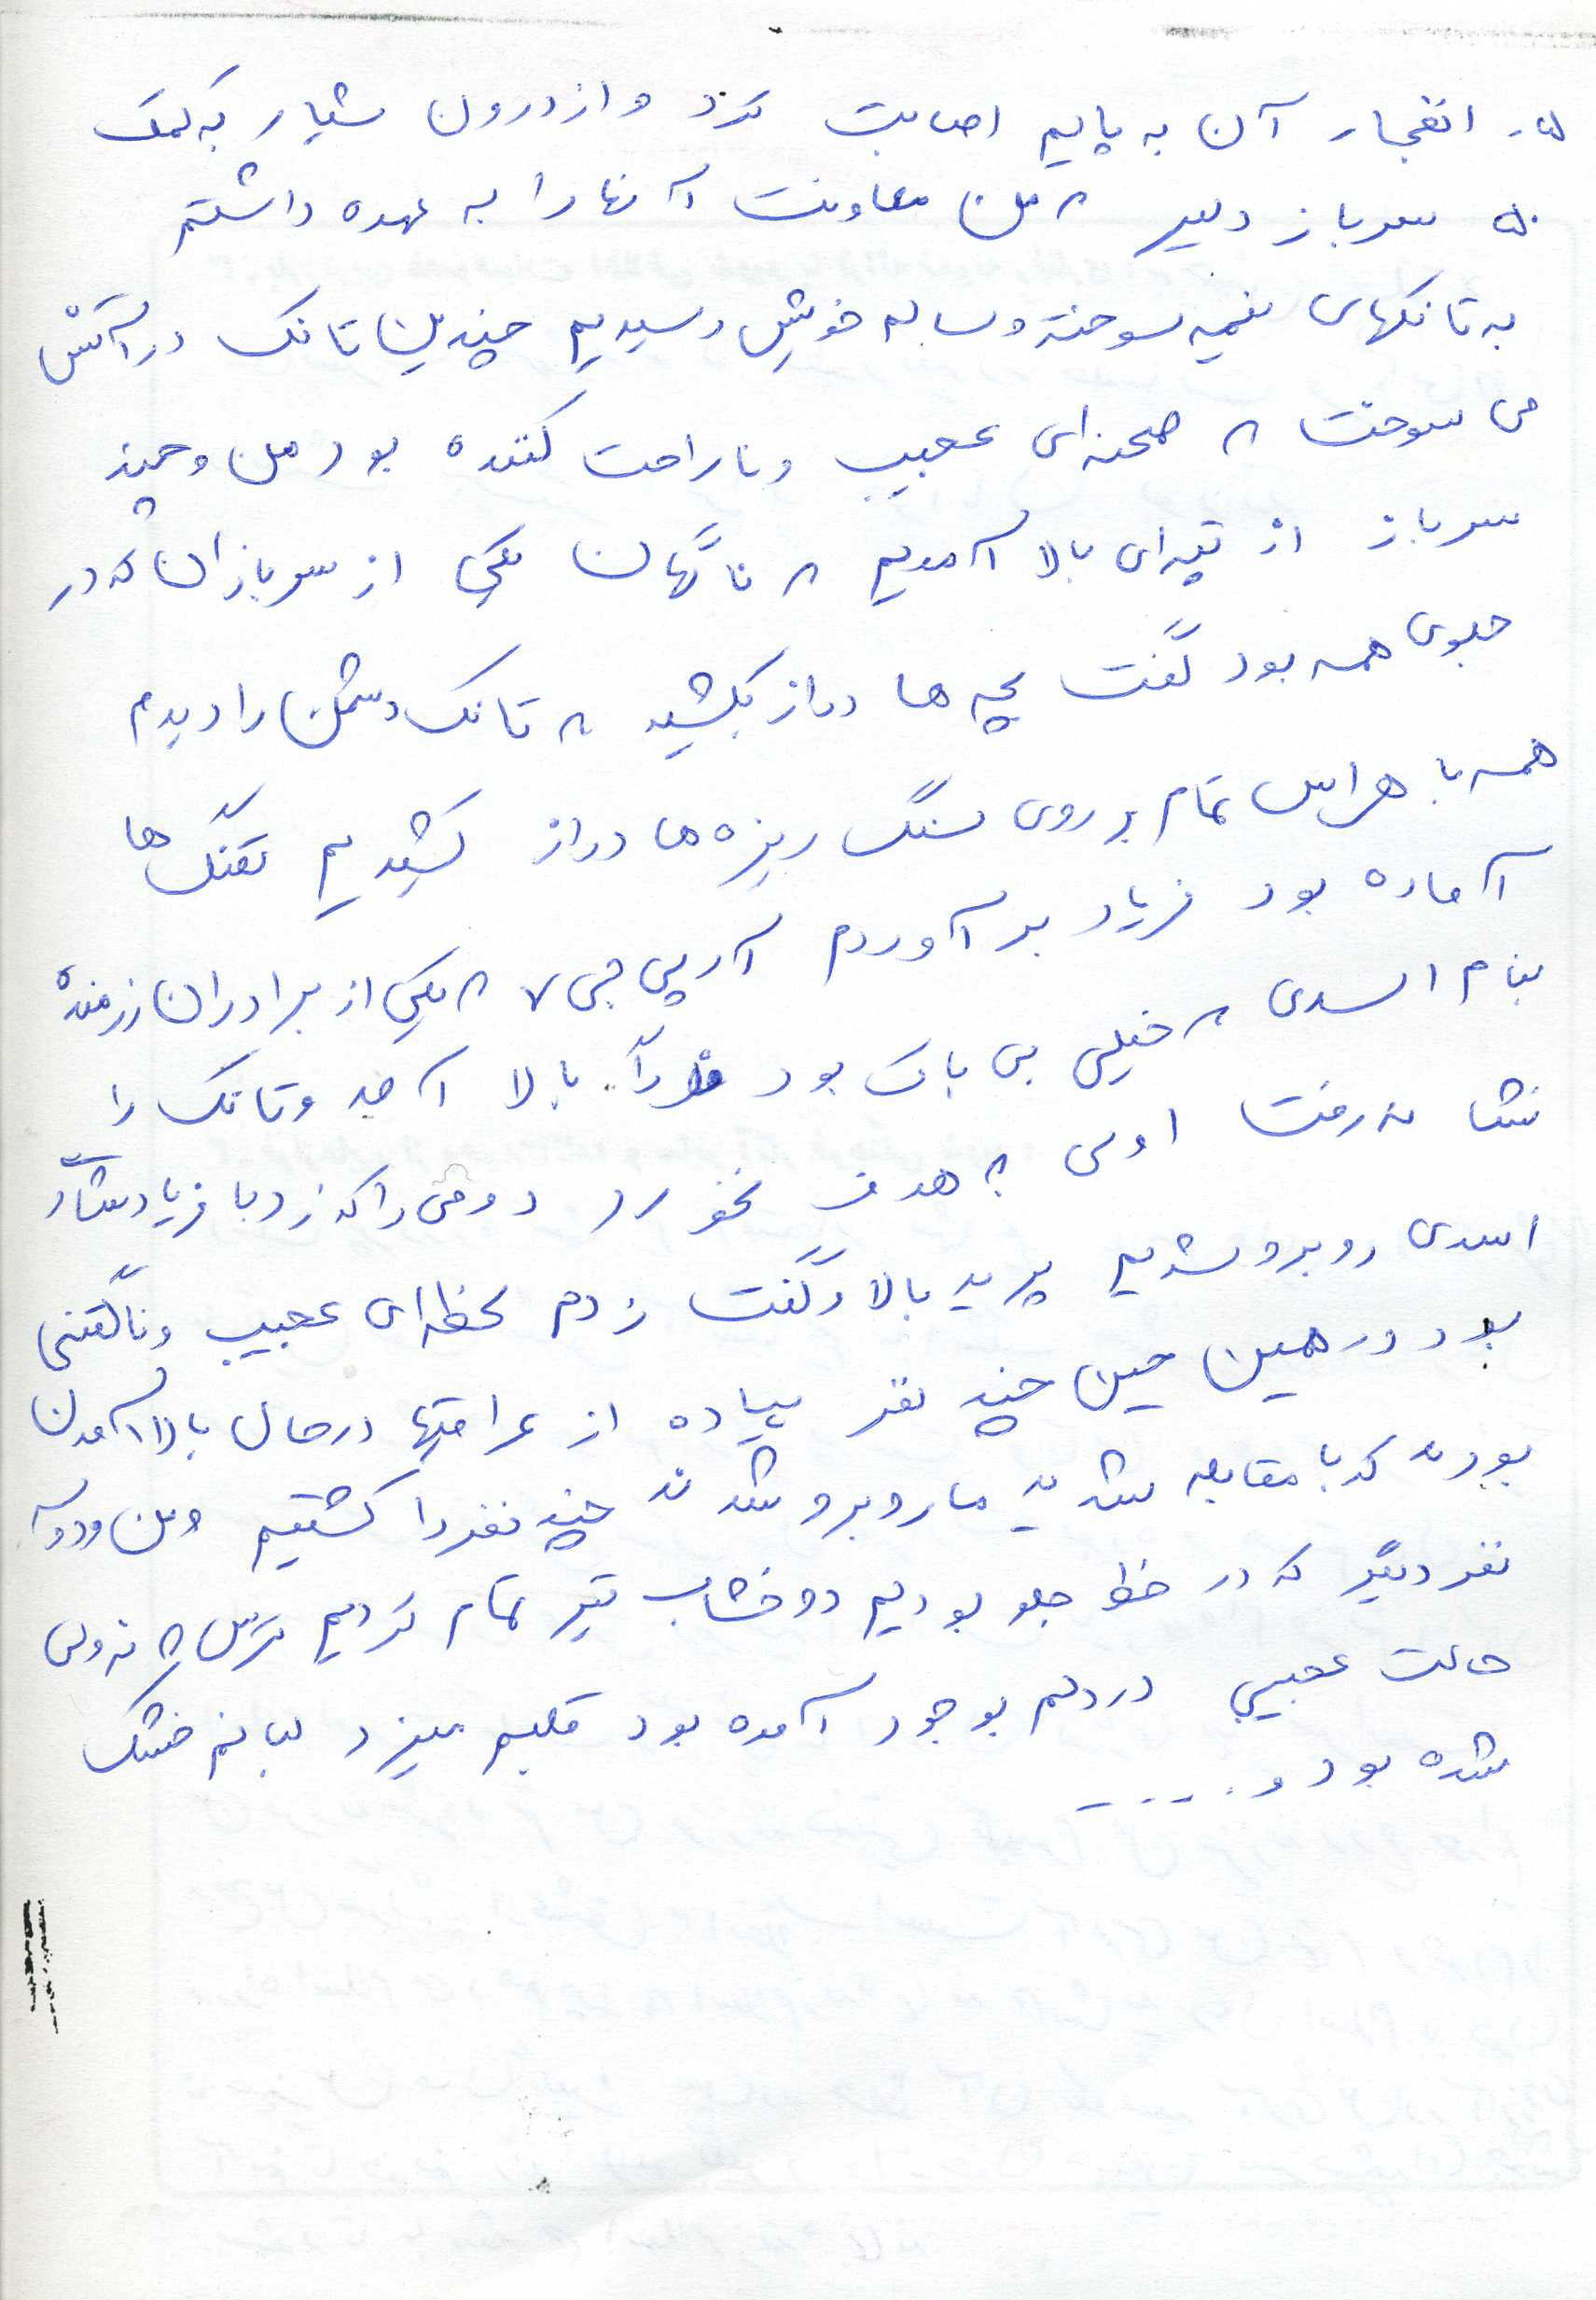 انفجار آن به پایم اصابت کرد و از درون شیار به کمک
۵۰ سرباز دلیر ۸ من معاونت آنها را به عهده داشتم
به تانکهای نیمه سوخته و سالم خویش رسیدیم چندین تانک در آتش
می سوخت ۸ صحنه‌ای عجیب و ناراحت کننده بود من و چند
سرباز از تپه‌ای بالا آمدیم ۸ ناگهان یکی از سربازان که در
جلوی همه بود گفت بچه ها دراز بکشید ۸ تانک دشمن را دیدم
همه با هراس تمام بر روی سنگ ریزه ها دراز کشیدیم تفنگ ها
آماده بود فریاد بر آوردم آر پی جی ۷ ۸ یکی از برادران رزمنده
بنام اسدی ۸ خیلی بی باک بود فوراً بالا آمد و تانک را
نشانه رفت اولی ۸ هدف نخورد دومی را که زد با فریاد
اسدی روبرو شدیم پرید بالا و گفت زدم لحظه‌ای عجیب و ناگفتنی
بود در همین حین چند نفر پیاده از عراقیها در حال بالا آمدن
بودند که با مقابله شدید ما روبرو شدند چند نفر را کشتیم و من و دو سه
نفر دیگر که در خط جلو بودیم دو خشاب تیر تمام کردیم ترس ۸ نه ولی
حالت عجیبی در دلم بوجود آمده بود قلبم میزد لبانم خشک
شده بود و .....